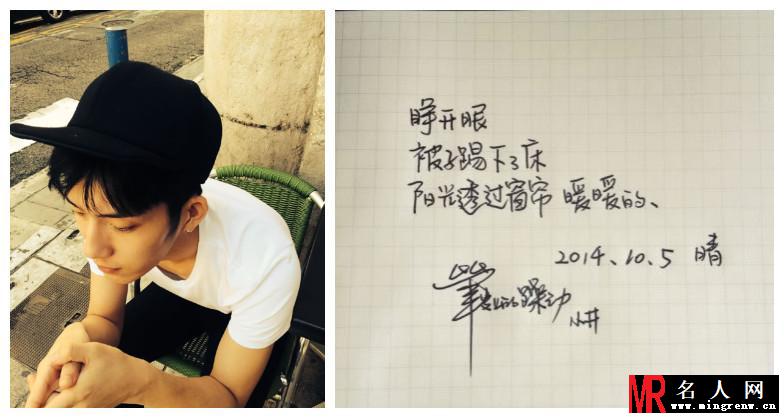 睁开眼
被子踢下了床
阳光透过窗帘 暖暖的、
2014、10、5 晴
MR 名人网
www.mingrenw.cn